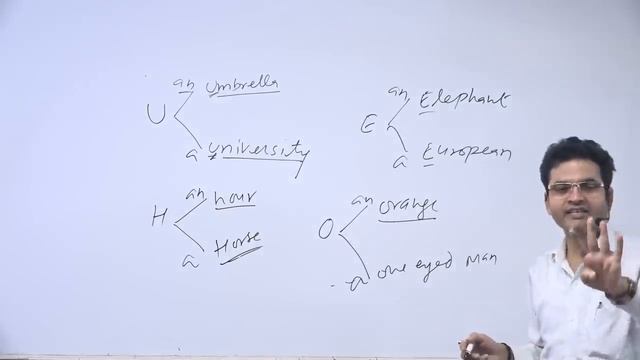 an umbrella
U
a university
an Elephant
E
a European
an hour
H
a Horse
an orange
O
a one eyed man